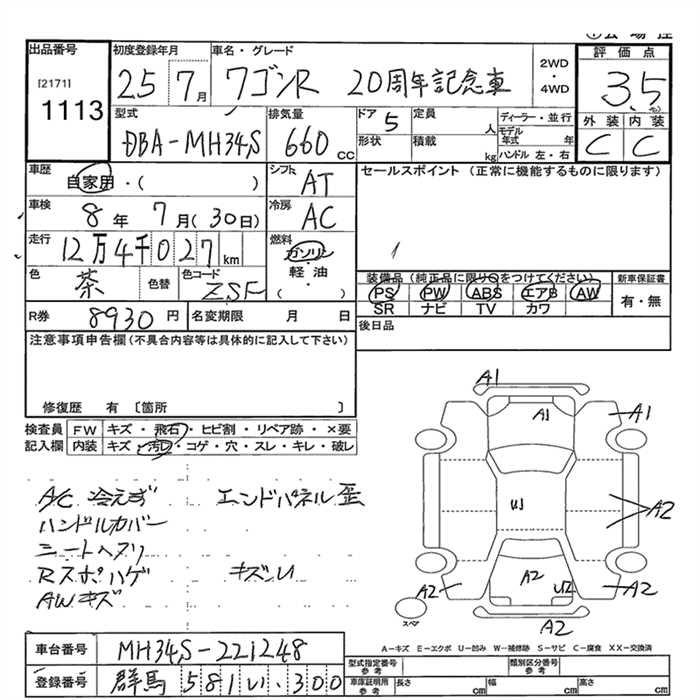 出品番号
[2171]
1113
初度登録年月
25 7月
車名・グレード
ワゴンR 20周年記念車
2WD
・
4WD
評価点
3.5
外装 内装
C C
型式
DBA-MH34S
排気量
660 CC
ドア 5
形状
定員 人
積載 kg
ディーラー・並行
モデル年式 年
ハンドル 左・右
車歴
自家用・( )
シフト AT
セールスポイント (正常に機能するものに限ります)
車検
8年 7月(30日)
冷房 AC
走行
12万4千027 km
燃料
ガソリン
・
軽油
・
( )
色
茶
色替
色コード
ZSF
装備品 (純正品に限り○をつけてください)
PS PW ABS エアB AW
SR ナビ TV カワ
新車保証書
有・無
R券 8930円
名変期限 月 日
後日品
注意事項申告欄 (不具合内容等は具体的に記入して下さい)
修復歴 有 〔箇所 〕
検査員 FW キズ・飛石・ヒビ割・リペア跡・×要
記入欄 内装 キズ・汚れ・コゲ・穴・スレ・キレ・破レ
A/C 冷えず エンドパネル歪
ハンドルカバー
シートヘタリ
Rスポハゲ キズ.U
AWキズ
A1
A1
A1
U1
A2
A2
A2
U2
A2
A2
スペア
A-キズ E-エクボ U-凹み W-補修跡 S-サビ C-腐食 XX-交換済
車台番号 MH34S-221248
登録番号 群馬 581 い 300
型式指定番号 参考
類別区分番号 参考
車庫証明用 参考
長さ cm 幅 cm 高さ cm